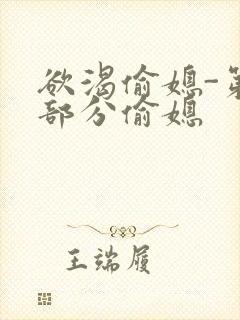 欲渴偷媳-第
部分偷媳
王端履